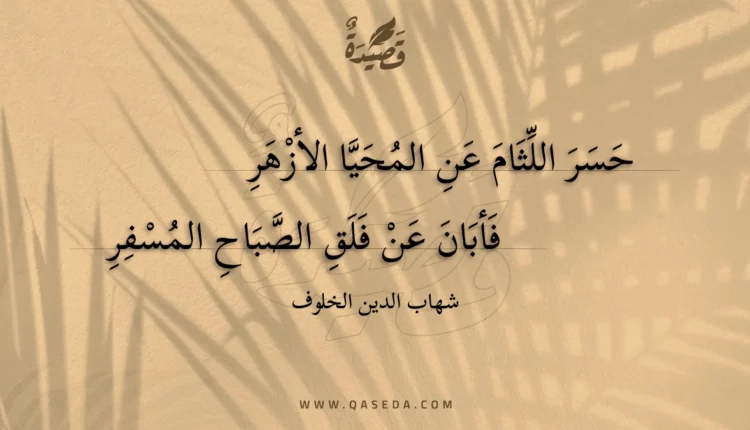 قَصِيْدَةٌ
حَسَرَ اللِّثَامَ عَنِ المُحَيَّا الأزْهَرِ
فَأبَانَ عَنْ فَلَقِ الصَّبَاحِ المُسْفِرِ
شهاب الدين الخلوف
WWW.QASEDA.COM